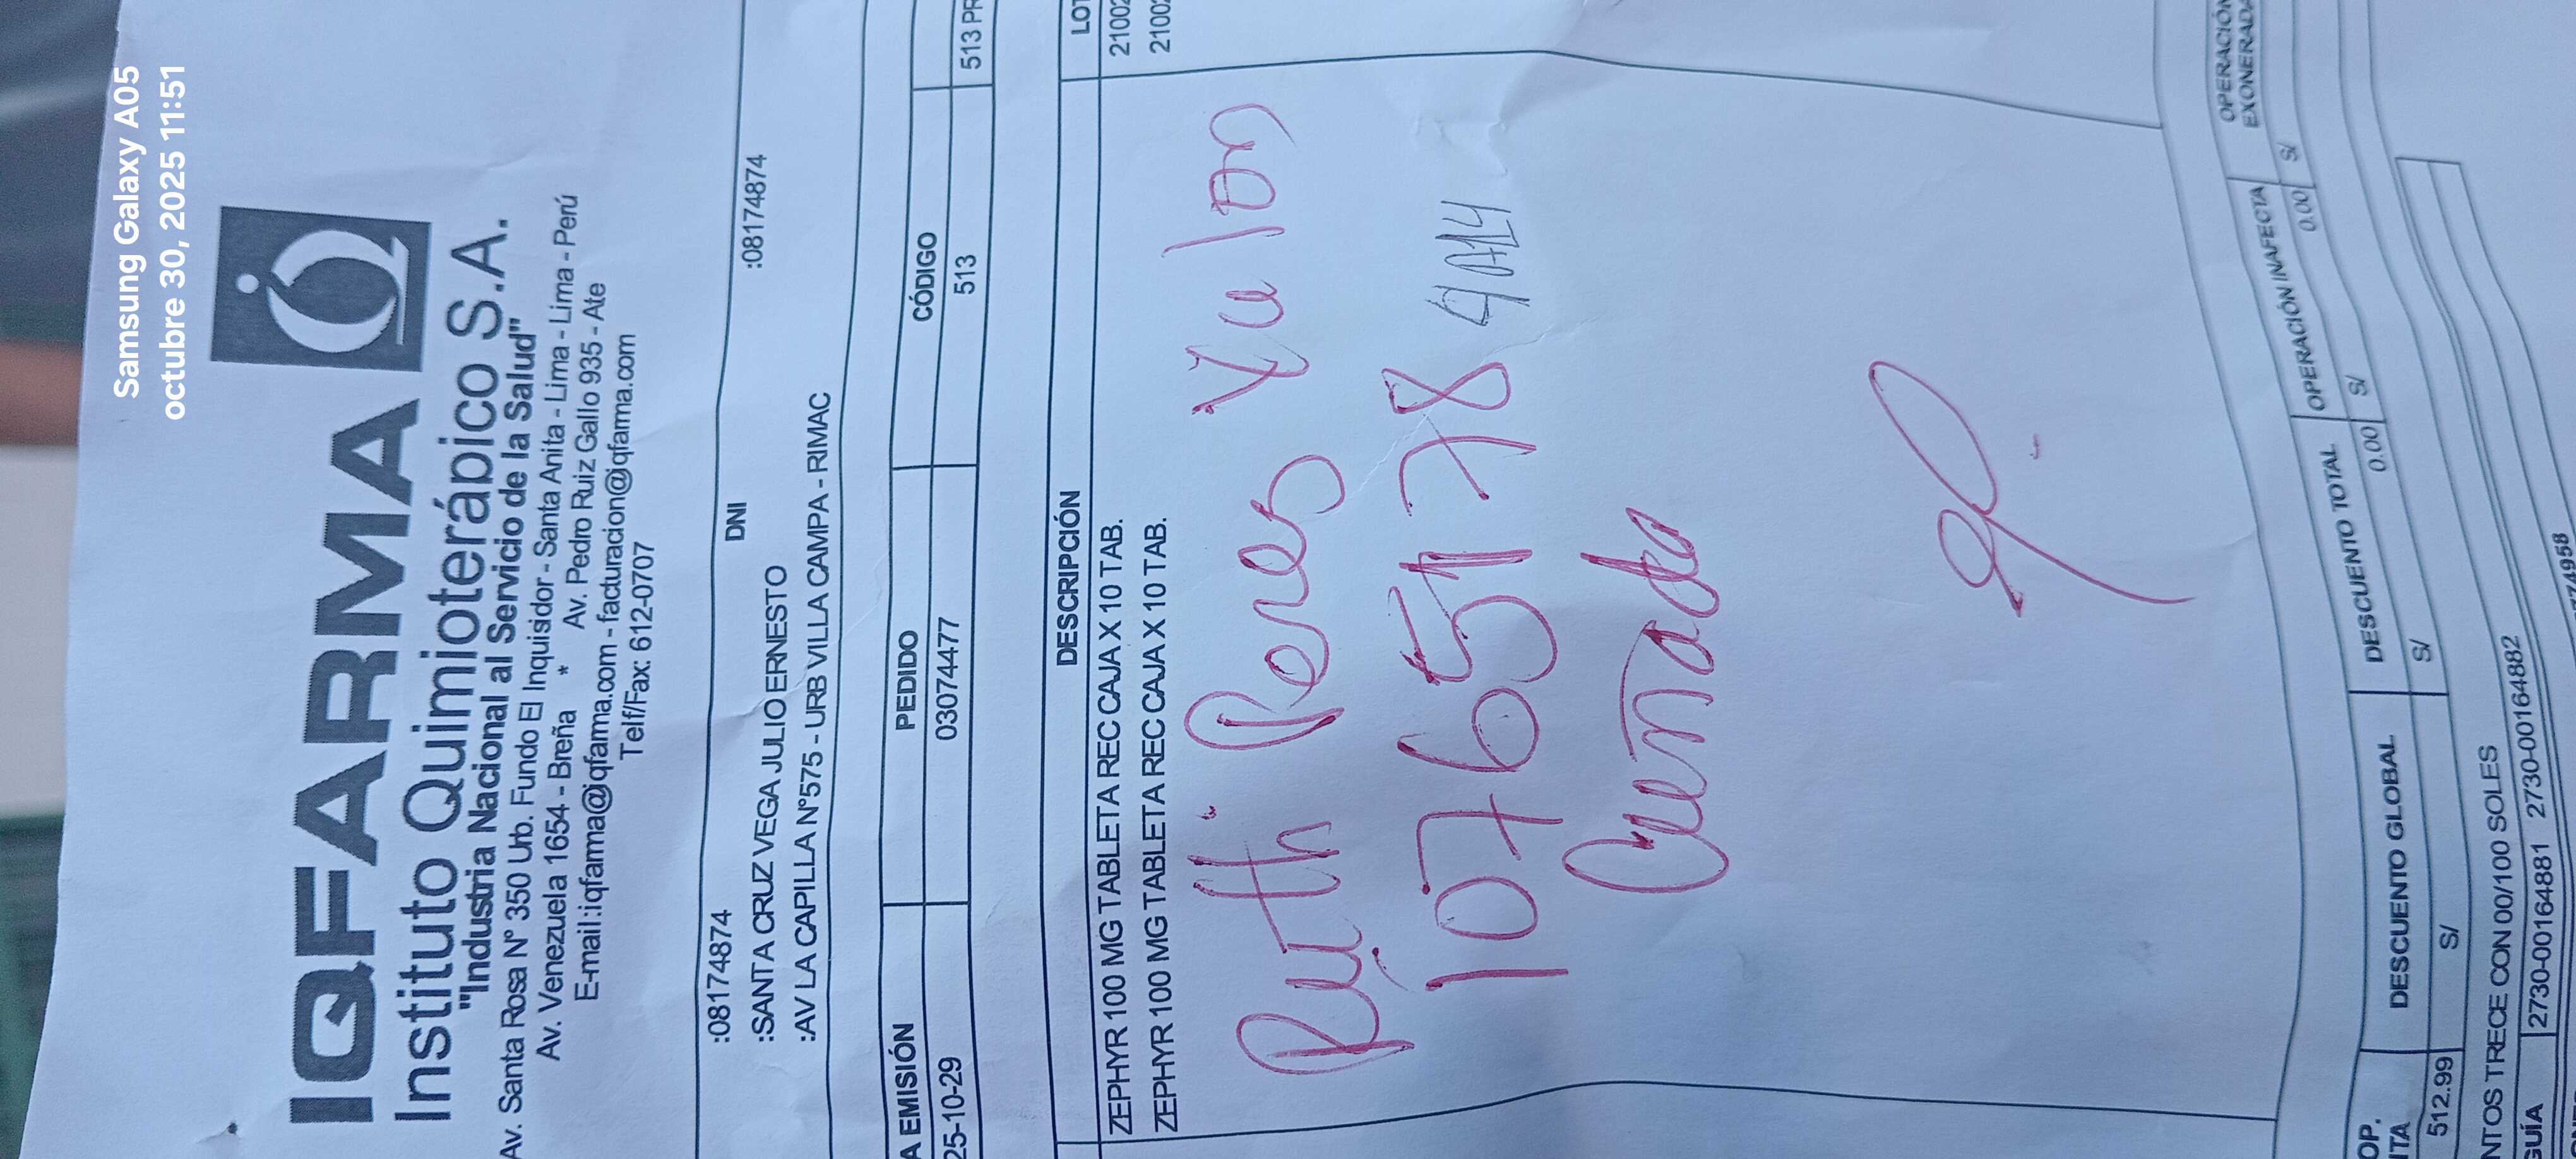 Samsung Galaxy A05
octubre 30, 2025 11:51
IQFARMA
Instituto Quimioterápico S.A.
"Industria Nacional al Servicio de la Salud"
Av. Santa Rosa Nº 350 Urb. Fundo El Inquisidor - Santa Anita - Lima - Lima - Perú
Av. Venezuela 1654 - Breña * Av. Pedro Ruiz Gallo 935 - Ate
E-mail:iqfarma@iqfarma.com - facturacion@iqfarma.com
Telf/Fax: 612-0707
:08174874 DNI :08174874
:SANTA CRUZ VEGA JULIO ERNESTO
:AV LA CAPILLA Nº575 - URB VILLA CAMPA - RIMAC
A EMISIÓN PEDIDO CÓDIGO
25-10-29 03074477 513 513 PR
DESCRIPCIÓN LOT
ZEPHYR 100 MG TABLETA REC CAJA X 10 TAB. 21002
ZEPHYR 100 MG TABLETA REC CAJA X 10 TAB. 21002
Ruth Peres
10765178
Cuñada
OP. DESCUENTO GLOBAL DESCUENTO TOTAL OPERACIÓN INAFECTA OPERACIÓN
ITA EXONERADA
512.99 S/ S/ 0.00 S/ 0.00 S/
NTOS TRECE CON 00/100 SOLES
GUÍA 2730-00164881 2730-00164882